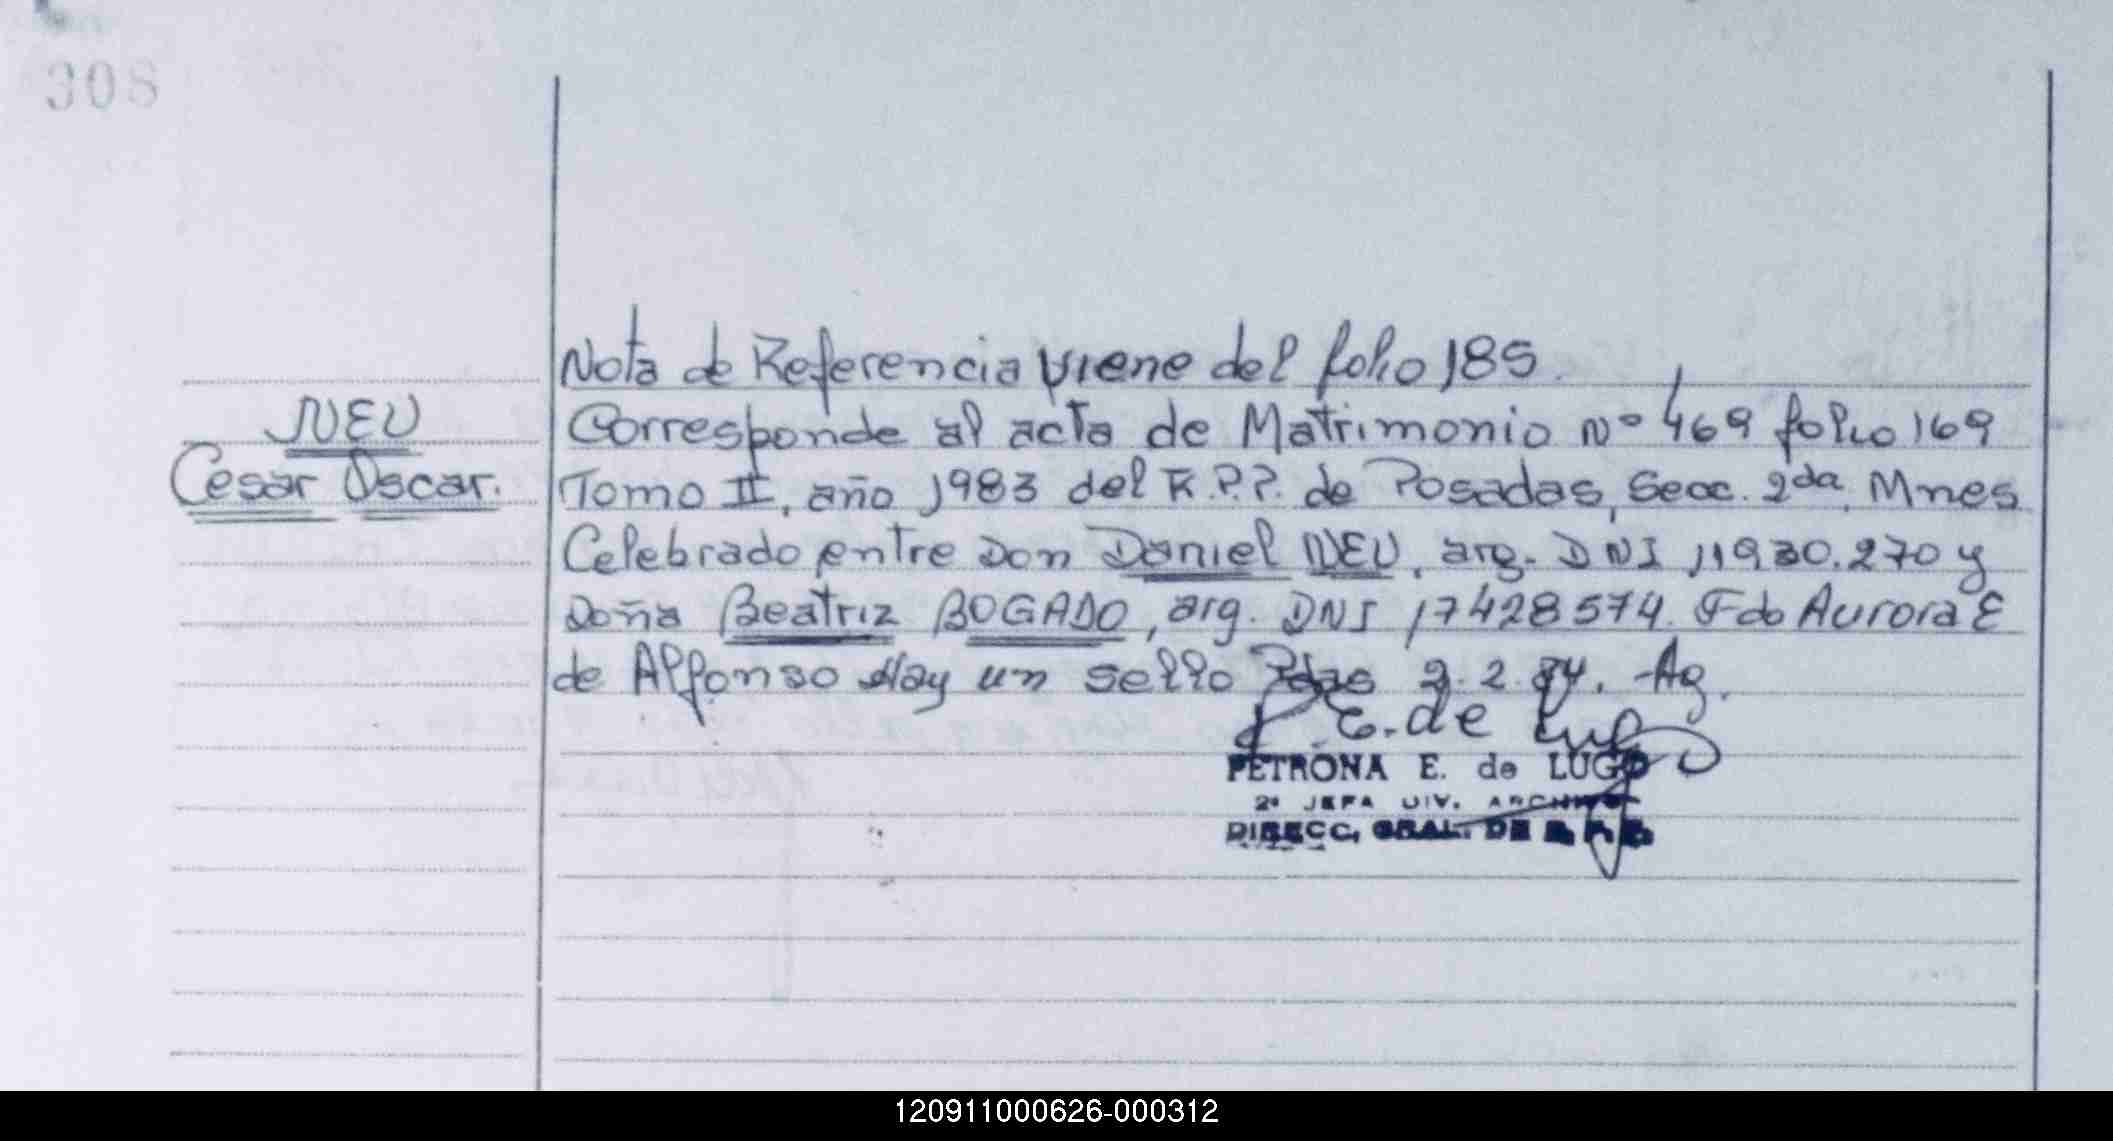 308
NEU
Cesar Oscar.
Nota de Referencia viene del folio 185.
Corresponde al acta de Matrimonio Nº 469 folio 169
Tomo II, año 1983 del R.P.P. de Posadas, Secc. 2da. Mnes
Celebrado entre Don Daniel NEU, arg. DNI 11930.270 y
Doña Beatriz BOGADO, arg. DNI 17428574. Fdo Aurora E
de Alfonso Hay un sello Pdas 2.2.84. Ag.
E. de Lugo
PETRONA E. de LUGO
2ª JEFA DIV. ARCHIVO
DIRECC. GRAL. DE R.P.P.
120911000626-000312